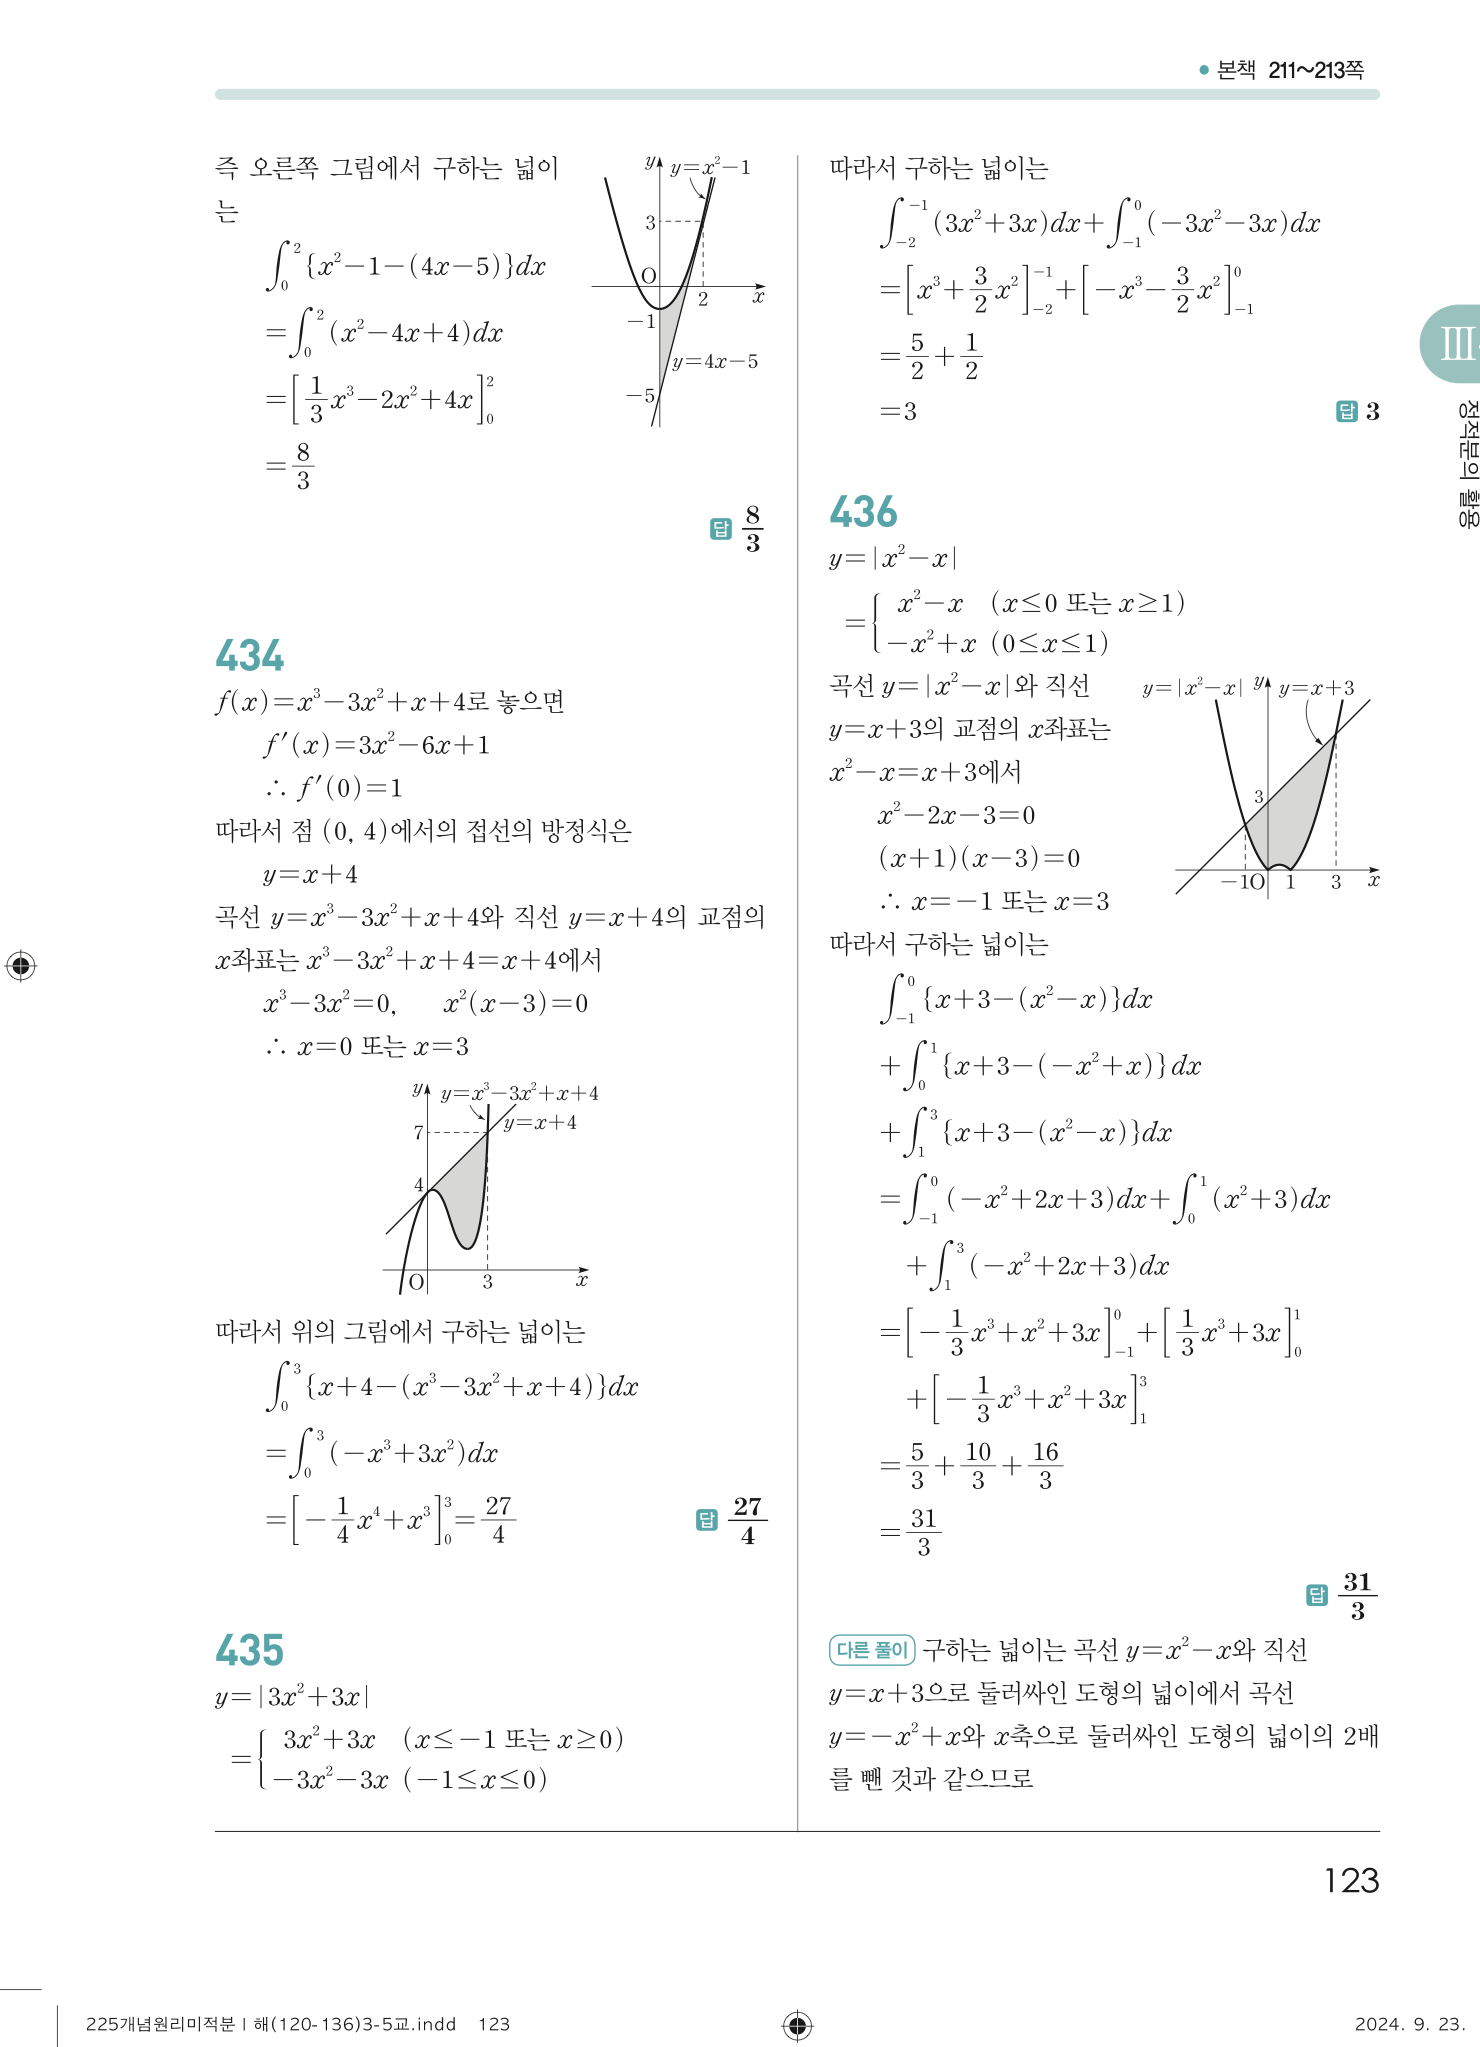 본책 211~213쪽
즉 오른쪽 그림에서 구하는 넓이
는
∫₀² {x²-1-(4x-5)}dx
=∫₀² (x²-4x+4)dx
=[1/3 x³-2x²+4x]₀²
=8/3
y
y=x²-1
3
O
2
x
-1
y=4x-5
-5
답 8/3
434
f(x)=x³-3x²+x+4로 놓으면
f'(x)=3x²-6x+1
∴ f'(0)=1
따라서 점 (0, 4)에서의 접선의 방정식은
y=x+4
곡선 y=x³-3x²+x+4와 직선 y=x+4의 교점의
x좌표는 x³-3x²+x+4=x+4에서
x³-3x²=0, x²(x-3)=0
∴ x=0 또는 x=3
y y=x³-3x²+x+4
y=x+4
7
4
O 3 x
따라서 위의 그림에서 구하는 넓이는
∫₀³ {x+4-(x³-3x²+x+4)}dx
=∫₀³ (-x³+3x²)dx
=[-1/4 x⁴+x³]₀³=27/4
답 27/4
435
y=|3x²+3x|
={ 3x²+3x (x≤-1 또는 x≥0)
-3x²-3x (-1≤x≤0)
따라서 구하는 넓이는
∫₋₂⁻¹ (3x²+3x)dx+∫₋₁⁰ (-3x²-3x)dx
=[x³+3/2 x²]₋₂⁻¹+[-x³-3/2 x²]₋₁⁰
=5/2+1/2
=3
답 3
436
y=|x²-x|
={ x²-x (x≤0 또는 x≥1)
-x²+x (0≤x≤1)
곡선 y=|x²-x|와 직선
y=x+3의 교점의 x좌표는
x²-x=x+3에서
x²-2x-3=0
(x+1)(x-3)=0
∴ x=-1 또는 x=3
y=|x²-x| y y=x+3
3
-1 O 1 3 x
따라서 구하는 넓이는
∫₋₁⁰ {x+3-(x²-x)}dx
+∫₀¹ {x+3-(-x²+x)}dx
+∫₁³ {x+3-(x²-x)}dx
=∫₋₁⁰ (-x²+2x+3)dx+∫₀¹ (x²+3)dx
+∫₁³ (-x²+2x+3)dx
=[-1/3 x³+x²+3x]₋₁⁰+[1/3 x³+3x]₀¹
+[-1/3 x³+x²+3x]₁³
=5/3+10/3+16/3
=31/3
답 31/3
다른 풀이 구하는 넓이는 곡선 y=x²-x와 직선
y=x+3으로 둘러싸인 도형의 넓이에서 곡선
y=-x²+x와 x축으로 둘러싸인 도형의 넓이의 2배
를 뺀 것과 같으므로
III
정적분의 활용
123
225개념원리미적분Ⅰ해(120-136)3-5교.indd 123
2024. 9. 23.